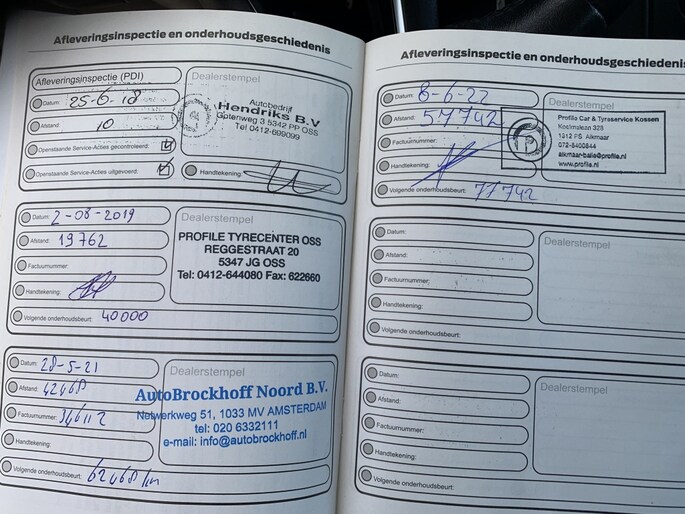 Afleveringsinspectie en onderhoudsgeschiedenis
Afleveringsinspectie (PDI)
Datum: 25-6-18
Afstand: 10
Openstaande Service-Acties gecontroleerd:
Openstaande Service-Acties uitgevoerd:
Dealerstempel
Autobedrijf
Hendriks B.V
Gotenweg 3 5342 PP OSS
Tel 0412-699099
Handtekening:
Datum: 2-08-2019
Afstand: 19762
Factuurnummer:
Handtekening:
Volgende onderhoudsbeurt: 40000
Dealerstempel
PROFILE TYRECENTER OSS
REGGESTRAAT 20
5347 JG OSS
Tel: 0412-644080 Fax: 622660
Datum: 28-5-21
Afstand: 42468
Factuurnummer: 346112
Handtekening:
Volgende onderhoudsbeurt: 62468 km
Dealerstempel
AutoBrockhoff Noord B.V.
Netwerkweg 51, 1033 MV AMSTERDAM
tel: 020 6332111
e-mail: info@autobrockhoff.nl
Afleveringsinspectie en onderhoudsgeschiedenis
Datum: 8-6-22
Afstand: 57742
Factuurnummer:
Handtekening:
Volgende onderhoudsbeurt: 77742
Dealerstempel
Profile Car & Tyreservice Kossen
Kooimeten 328
1812 PS Alkmaar
072-5400844
alkmaar-balie@profile.nl
www.profile.nl
Datum:
Afstand:
Factuurnummer:
Handtekening:
Volgende onderhoudsbeurt:
Dealerstempel
Datum:
Afstand:
Factuurnummer:
Handtekening:
Volgende onderhoudsbeurt:
Dealerstempel